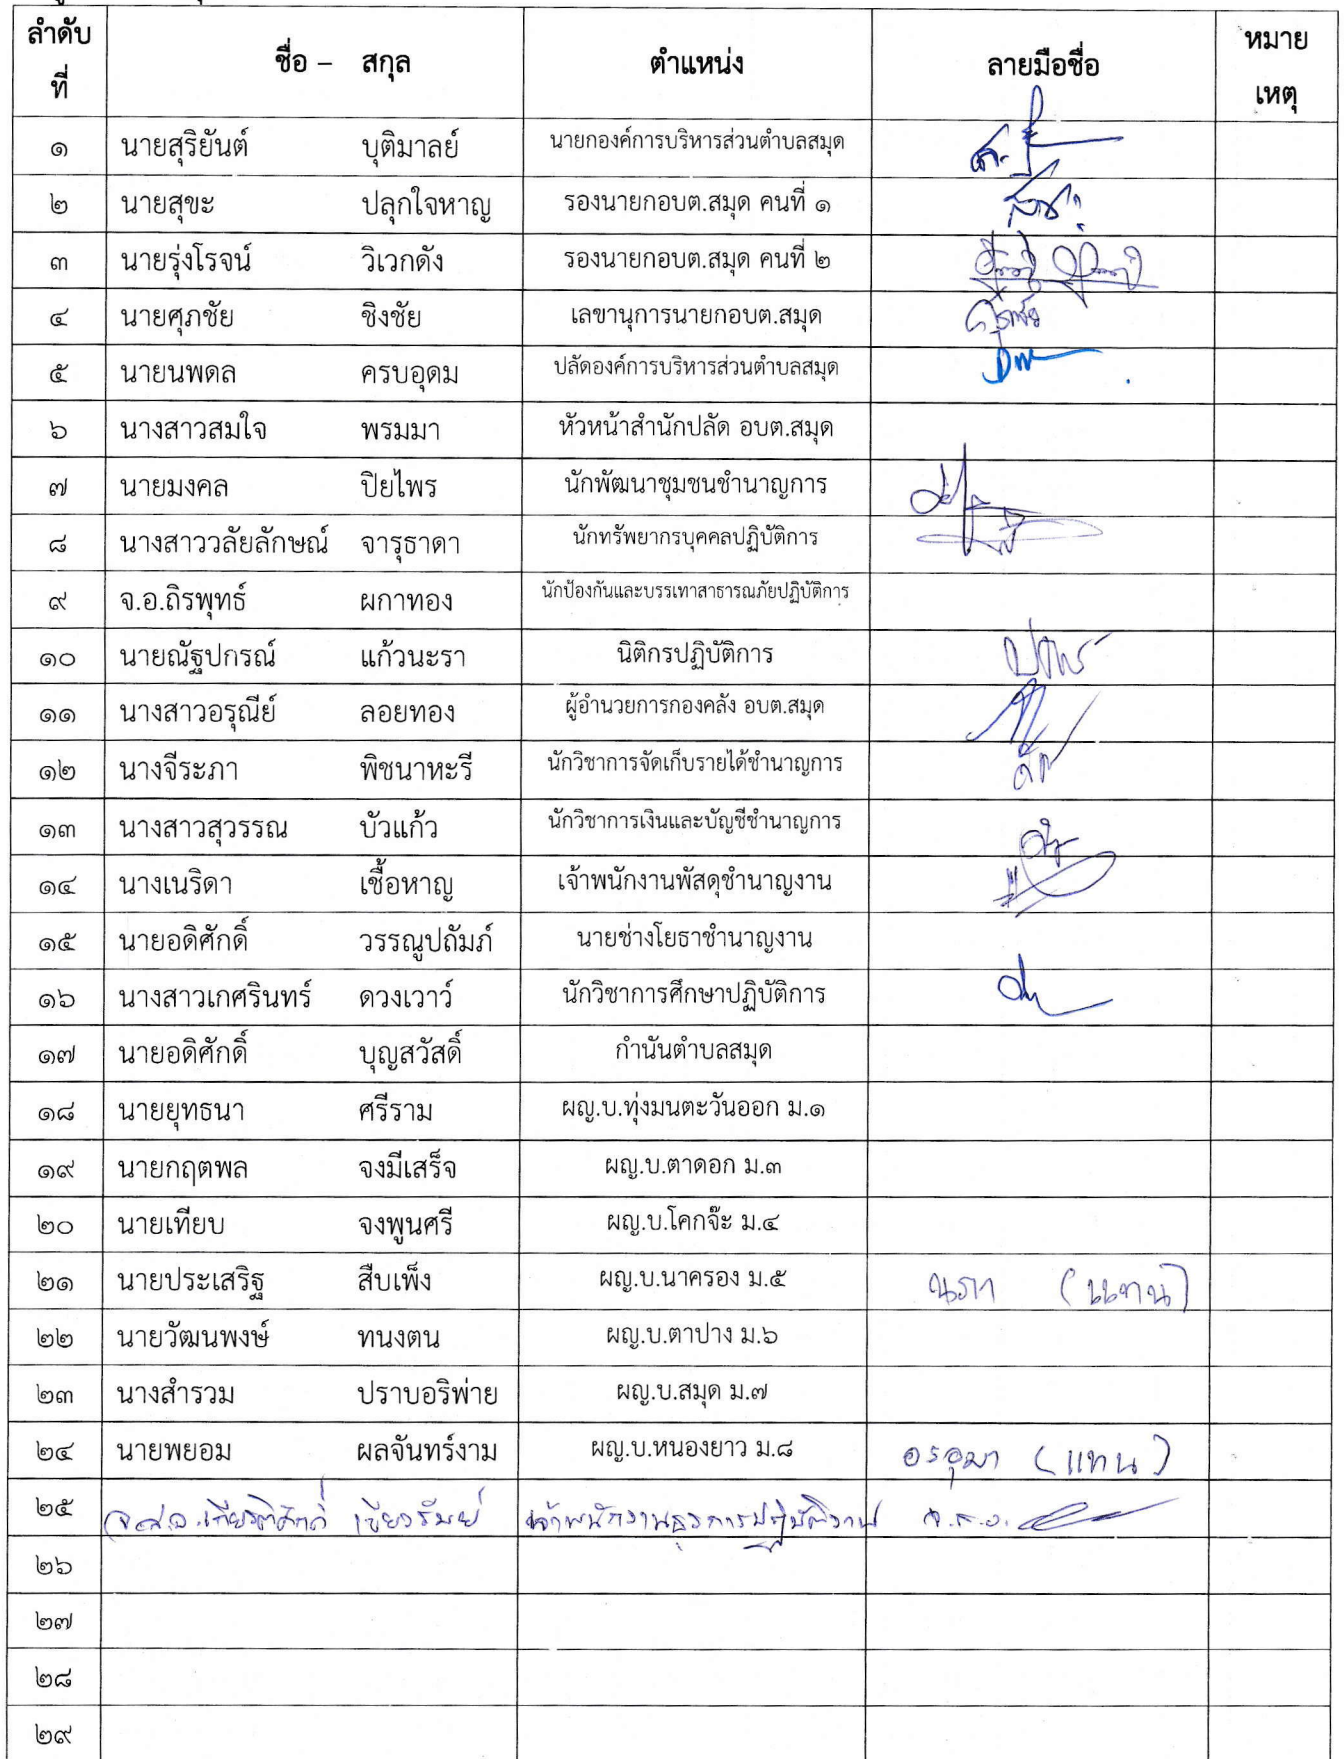 ลำดับที่ ชื่อ – สกุล ตำแหน่ง ลายมือชื่อ หมายเหตุ
๑ นายสุริยันต์ บุติมาลย์ นายกองค์การบริหารส่วนตำบลสมุด
๒ นายสุขะ ปลุกใจหาญ รองนายกอบต.สมุด คนที่ ๑
๓ นายรุ่งโรจน์ วิเวกดัง รองนายกอบต.สมุด คนที่ ๒
๔ นายศุภชัย ชิงชัย เลขานุการนายกอบต.สมุด ศุภชัย
๕ นายนพดล ครบอุดม ปลัดองค์การบริหารส่วนตำบลสมุด
๖ นางสาวสมใจ พรมมา หัวหน้าสำนักปลัด อบต.สมุด
๗ นายมงคล ปิยไพร นักพัฒนาชุมชนชำนาญการ
๘ นางสาววลัยลักษณ์ จารุธาดา นักทรัพยากรบุคคลปฏิบัติการ
๙ จ.อ.ถิรพุทธ์ ผกาทอง นักป้องกันและบรรเทาสาธารณภัยปฏิบัติการ
๑๐ นายณัฐปกรณ์ แก้วนะรา นิติกรปฏิบัติการ
๑๑ นางสาวอรุณีย์ ลอยทอง ผู้อำนวยการกองคลัง อบต.สมุด
๑๒ นางจีระภา พิชนาหะรี นักวิชาการจัดเก็บรายได้ชำนาญการ
๑๓ นางสาวสุวรรณ บัวแก้ว นักวิชาการเงินและบัญชีชำนาญการ
๑๔ นางเนริดา เชื้อหาญ เจ้าพนักงานพัสดุชำนาญงาน
๑๕ นายอดิศักดิ์ วรรณูปถัมภ์ นายช่างโยธาชำนาญงาน
๑๖ นางสาวเกศรินทร์ ดวงเวาว์ นักวิชาการศึกษาปฏิบัติการ
๑๗ นายอดิศักดิ์ บุญสวัสดิ์ กำนันตำบลสมุด
๑๘ นายยุทธนา ศรีราม ผญ.บ.ทุ่งมนตะวันออก ม.๑
๑๙ นายกฤตพล จงมีเสร็จ ผญ.บ.ตาดอก ม.๓
๒๐ นายเทียบ จงพูนศรี ผญ.บ.โคกจ๊ะ ม.๔
๒๑ นายประเสริฐ สืบเพ็ง ผญ.บ.นาครอง ม.๕ นรา (แทน)
๒๒ นายวัฒนพงษ์ ทนงตน ผญ.บ.ตาปาง ม.๖
๒๓ นางสำรวม ปราบอริพ่าย ผญ.บ.สมุด ม.๗
๒๔ นายพยอม ผลจันทร์งาม ผญ.บ.หนองยาว ม.๘ อรอุมา (แทน)
๒๕ จ.ส.อ.เกียรติศักดิ์ เจ้าพนักงานธุรการปฏิบัติงาน จ.ส.อ.
๒๖
๒๗
๒๘
๒๙